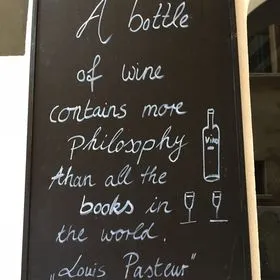 A bottle
of wine
contains more
philosophy
than all the
books in
the world.
„Louis Pasteur"
Vino